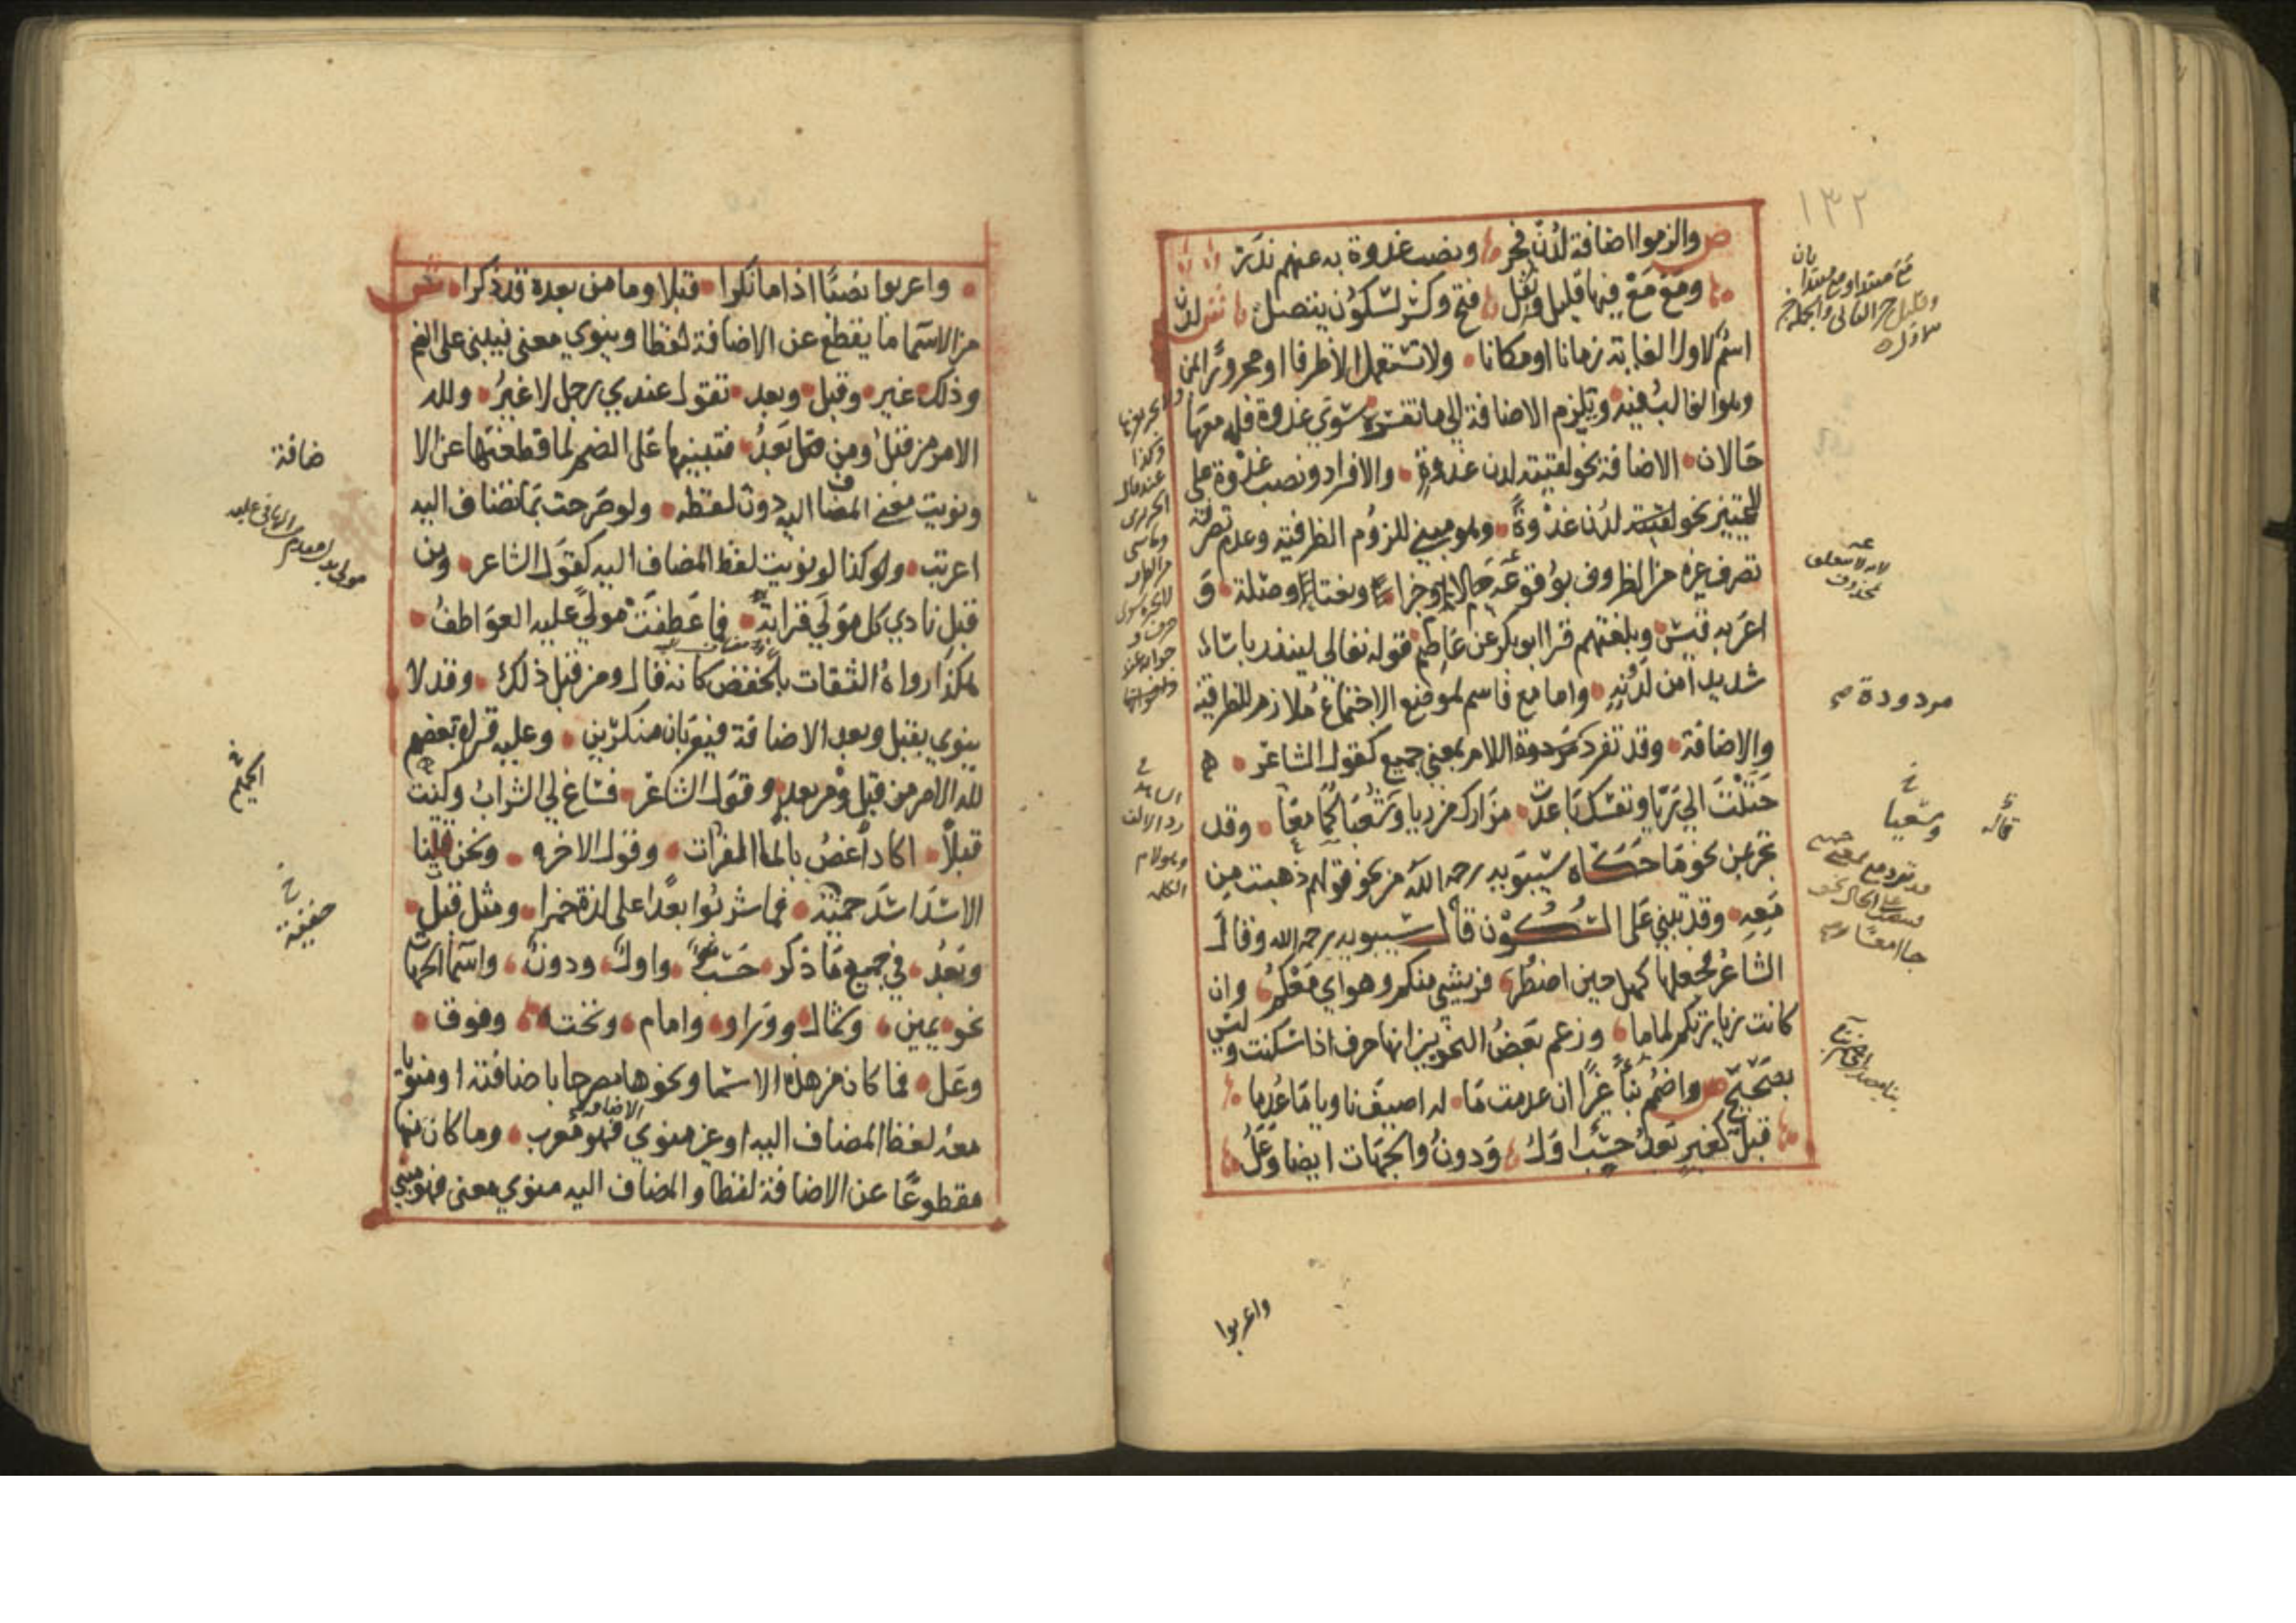 ١٣٢
ص والزموا اضافة لدن فجر ونصب غدوة به عنهم ندر
ومع مع فيها قليل ونقل فتح وكسر لسكون يتصل ش لدن
اسم لاول الغاية زمانا او مكانا ولا تستعمل الا ظرفا او مجرورا بمن
وهو الغالب فيه ويلزم الاضافة الى ما تفسره سوى غدوة فله معها
حالان الاضافة نحو لقيته لدن غدوة والافراد ونصب غدوة على
التمييز نحو لقيته لدن غدوة وهو مبني للزوم الظرفية وعدم تصرفه
تصرف غيره من الظروف بوقوعه حالا وخبرا ونعتا وصلة و
اعربه قيس وبلغتهم قرا ابو بكر عن عاصم قوله تعالى لينذر باسا
شديدا من لدنه واما مع فاسم لموضع الاجتماع ملازم للظرفية
والاضافة وقد تفرد مردودة اللام بمعنى جميع كقول الشاعر
حننت الى ريا ونفسك باعدت مزارك من ريا وشعباكما معا وقد
تجر بمن نحو ما حكاه سيبويه رحمه الله من نحو قولهم ذهبت من
معه وقد تبنى على السكون قال سيبويه رحمه الله وقال
الشاعر فجعلها كهل حين اضطر فريشي منكم وهواي معكم وان
كانت زيارتكم لماما وزعم بعض النحويين انها حرف اذا سكنت وليس
بصحيح ص واضمم بناء غيرا ان عدمت ما له اضيف ناويا ما عدما
قبل كغير بعد حسب اول ودون والجهات ايضا وعل
مردودة صح
خ
وشعبا
قاله
لانه لا يتعلق
بمحذوف
واعربوا
واعربوا نصبا اذا ما نكرا قبلا وما من بعده قد ذكرا ش
من الاسما ما يقطع عن الاضافة لفظا وينوي معنى فيبنى على الضم
وذلك غير وقبل وبعد تقول عندي رجل لا غير ولله
الامر من قبل ومن بعد فتبنيها على الضم لما قطعتها عن الا
ونويت معنى المضاف اليه دون لفظه ولو صرحت بما تضاف اليه
اعربت وكذا لو نويت لفظ المضاف اليه كقول الشاعر ومن
قبل نادي كل مولى قرابة فما عطفت مولى عليه العواطف
هكذا رواه الثقات بالخفض كانه قال ومن قبل ذلك وقد لا
ينوي بقبل وبعد الاضافة فيعربان منكرين وعليه قراه بعضهم
لله الامر من قبل ومن بعد وقول الشاعر فساغ لي الشراب وكنت
قبلا اكاد اغص بالماء الفرات وقول الاخر ونحن قتلنا
الاسد اسد خفية فما شربوا بعدا على لذة خمرا ومثل قبل
وبعد في جميع ما ذكر حسب واول ودون واسما الجهات
نحو يمين وشمال وورا وامام وتحت وفوق
وعل فما كان من هذه الاسما ونحوها مصرحا باضافته او منويا
معه لفظ المضاف اليه او غير منوي الاضافة فهو معرب وما كان منها
مقطوعا عن الاضافة لفظا والمضاف اليه منوي معنى فهو مبني
ضافة
الحميم
خ
خفية